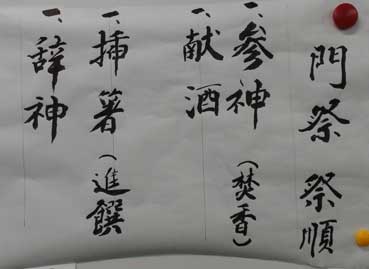 門祭祭順
一、参神（焚香）
献酒
一、挿箸（進饌）
一、辞神